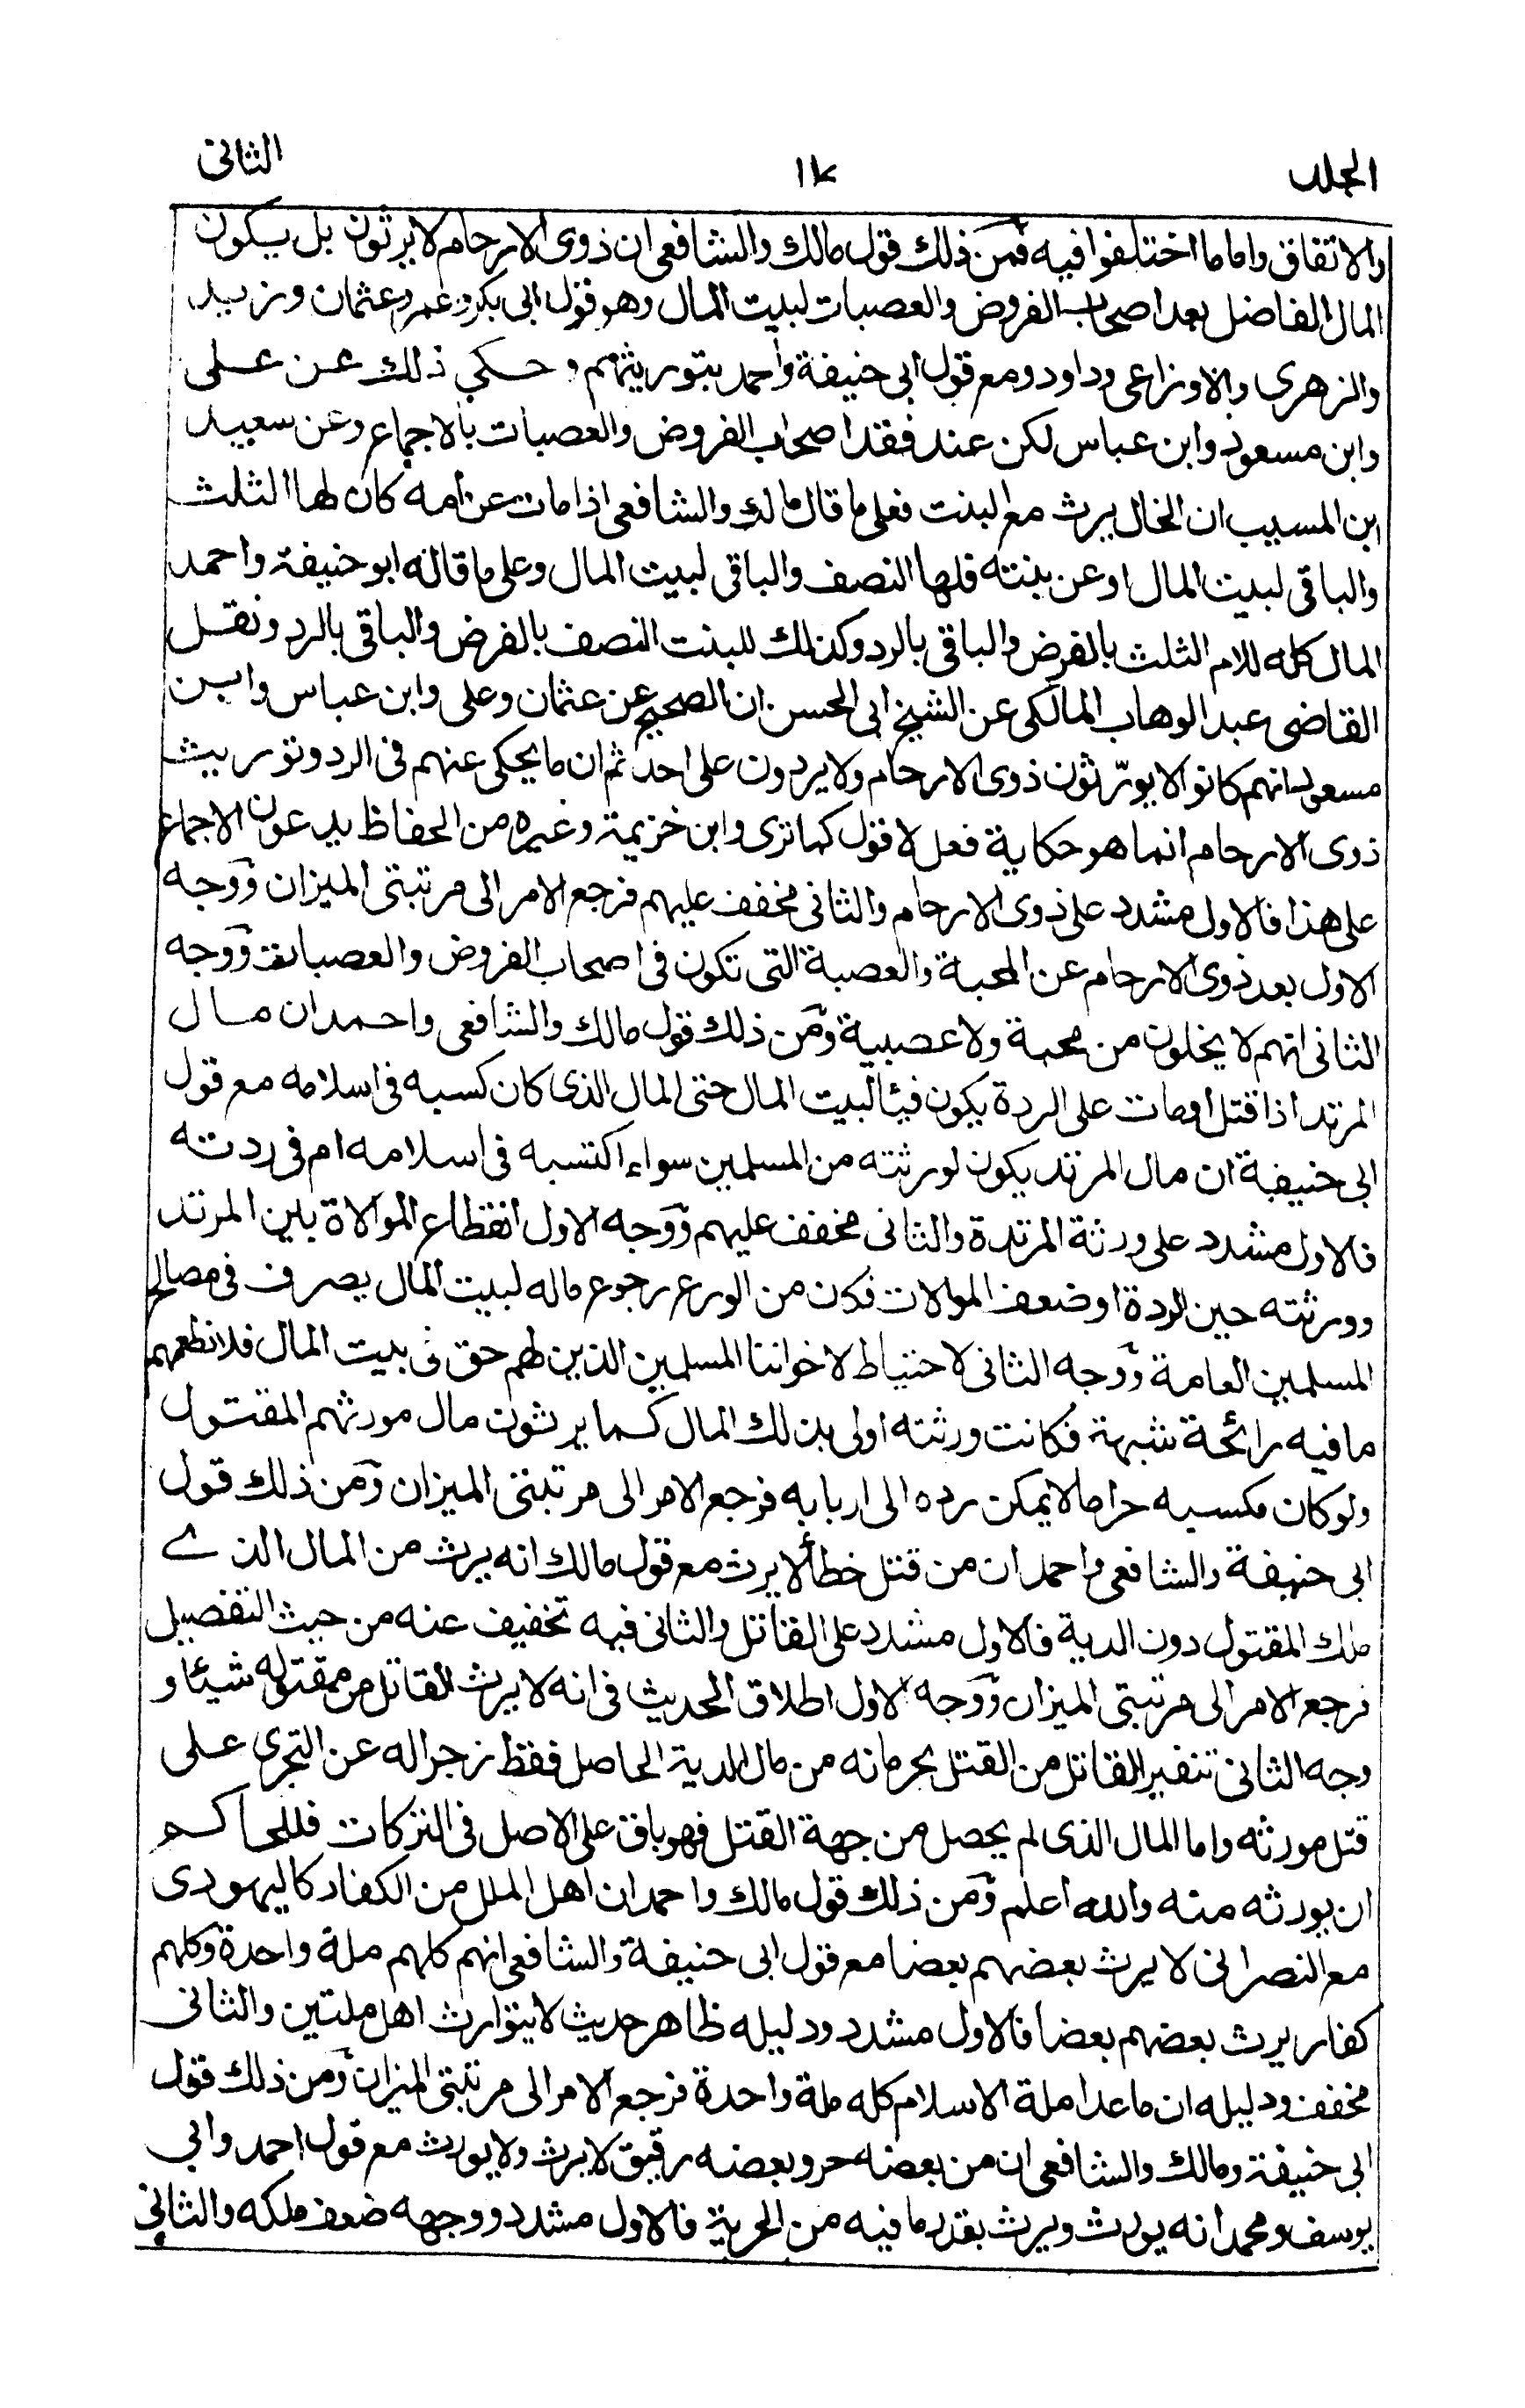 الجلد ١٤ الثانى
والاتفاق واما ما اختلفوا فيه فمن ذلك قول مالك والشافعى ان ذوى الارحام لا يرثون بل يكون
المال الفاضل بعد اصحاب الفروض والعصبات لبيت المال وهو قول ابى بكر وعمر وعثمان وزيد
والزهرى والاوزاعى وداود ومع قول ابى حنيفة واحمد بتوريثهم وحكى ذلك عن على
وابن مسعود وابن عباس لكن عند فقد اصحاب الفروض والعصبات بالاجماع وعن سعيد
ابن المسيب ان الخال يرث مع البنت فعلى ما قال مالك والشافعى اذا مات عن امه كان لها الثلث
والباقى لبيت المال او عن بنته فلها النصف والباقى لبيت المال وعلى ما قاله ابو حنيفة واحمد
المال كله للام الثلث بالفرض والباقى بالرد وكذلك للبنت النصف بالفرض والباقى بالرد ونقل
القاضى عبد الوهاب المالكى عن الشيخ ابى الحسن ان الصحيح عن عثمان وعلى وابن عباس وابن
مسعود انهم كانوا لا يورّثون ذوى الارحام ولا يردون على احد ثم ان ما يحكى عنهم فى الرد وتوريث
ذوى الارحام انما هو حكاية فعل لا قول كما ترى وابن خزيمة وغيره من الحفاظ يدعون الاجماع
على هذا فالاول مشدد على ذوى الارحام والثانى مخفف عليهم فرجع الامر الى مرتبتى الميزان ووجه
الاول بعد ذوى الارحام عن المحبة والعصبة التى تكون فى اصحاب الفروض والعصبات ووجه
الثانى انهم لا يخلون من محبة ولا عصبية ومن ذلك قول مالك والشافعى واحمد ان مال
المرتد اذا قتل او مات على الردة يكون فيئا لبيت المال حتى المال الذى كان كسبه فى اسلامه مع قول
ابى حنيفة ان مال المرتد يكون لورثته من المسلمين سواء اكتسبه فى اسلامه ام فى ردته
فالاول مشدد على ورثة المرتدة والثانى مخفف عليهم ووجه الاول انقطاع الموالاة بين المرتد
وورثته حين الردة او ضعف الموالات فكان من الورع رجوع ماله لبيت المال يصرف فى مصالح
المسلمين العامة ووجه الثانى لاحتياط لاخواننا المسلمين الذين لهم حق فى بيت المال فلا نطعمهم
ما فيه رائحة شبهة فكانت ورثته اولى بذلك المال كما يرثون مال مورثهم المقتول
ولو كان مكسبه حراما لا يمكن رده الى اربابه فرجع الامر الى مرتبتى الميزان ومن ذلك قول
ابى حنيفة والشافعى واحمد ان من قتل خطأ لا يرث مع قول مالك انه يرث من المال الذى
ملك المقتول دون الدية فالاول مشدد على القاتل والثانى فيه تخفيف عنه من حيث التفصيل
فرجع الامر الى مرتبتى الميزان ووجه الاول اطلاق الحديث فى انه لا يرث القاتل من مقتوله شيئا و
وجه الثانى تنفير القاتل من القتل بحرمانه من مال الدية الحاصل فقط زجرا له عن التجرى على
قتل مورثه واما المال الذى لم يحصل من جهة القتل فهو باق على الاصل فى التركات فللحاكم
ان يورثه منه والله اعلم ومن ذلك قول مالك واحمد ان اهل الملل من الكفار كاليهودى
مع النصرانى لا يرث بعضهم بعضا مع قول ابى حنيفة والشافعى انهم كلهم ملة واحدة وكلهم
كفار يرث بعضهم بعضا فالاول مشدد ودليله ظاهر حديث لا يتوارث اهل ملتين والثانى
مخفف ودليله ان ما عدا ملة الاسلام كله ملة واحدة فرجع الامر الى مرتبتى الميزان ومن ذلك قول
ابى حنيفة ومالك والشافعى ان من بعضه حر وبعضه رقيق لا يرث ولا يورث مع قول احمد وابى
يوسف ومحمد انه يورث ويرث بقدر ما فيه من الحرية فالاول مشدد ووجهه ضعف ملكه والثانى